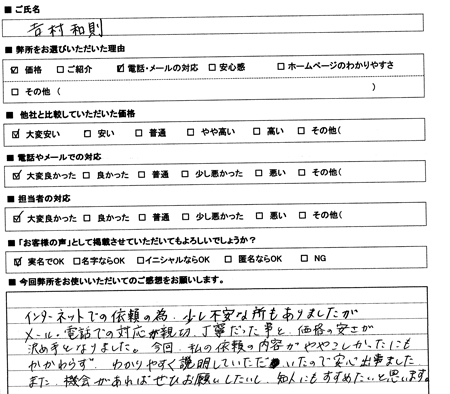 ■ ご氏名
吉村和則
■ 弊所をお選びいただいた理由
☑ 価格 □ ご紹介 ☑ 電話・メールの対応 □ 安心感 □ ホームページのわかりやすさ
□ その他 ( )
■ 他社と比較していただいた価格
☑ 大変安い □ 安い □ 普通 □ やや高い □ 高い □ その他(
■ 電話やメールでの対応
☑ 大変良かった □ 良かった □ 普通 □ 少し悪かった □ 悪い □ その他(
■ 担当者の対応
☑ 大変良かった □ 良かった □ 普通 □ 少し悪かった □ 悪い □ その他(
■ 「お客様の声」として掲載させていただいてもよろしいでしょうか？
☑ 実名でOK □ 名字ならOK □ イニシャルならOK □ 匿名ならOK □ NG
■ 今回弊所をお使いいただいてのご感想をお願いします。
インターネットでの依頼の為、少し不安な所もありましたが
メール・電話での対応が親切、丁寧だった事と、価格の安さが
決め手となりました。今回、私の依頼の内容がややこしかったにも
かかわらず、わかりやすく説明していただいたので安心出来ました
また、機会があればぜひお願いしたいし、知人にもすすめたいと思います。